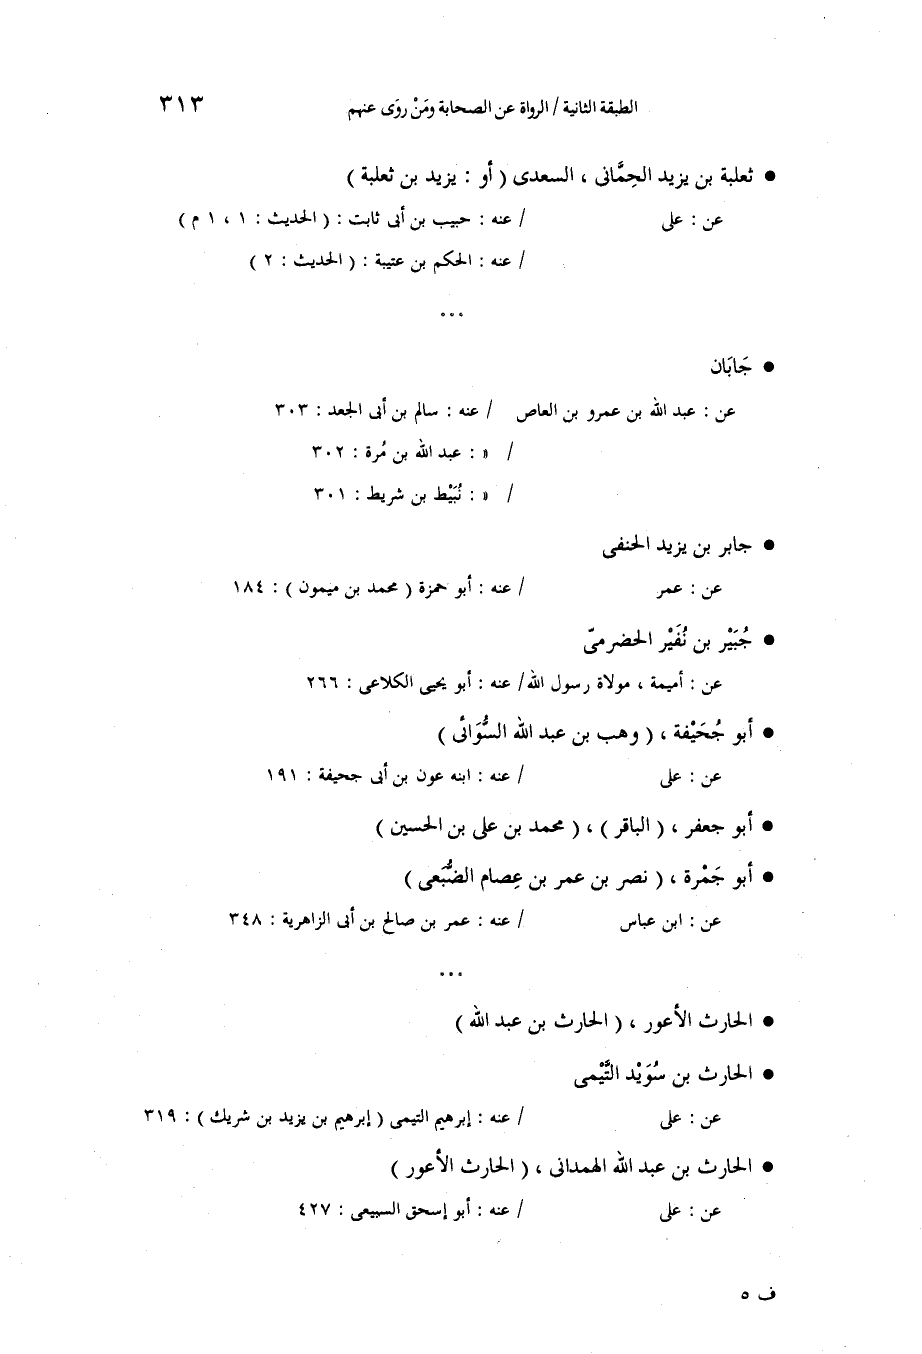 الطبقة الثانية / الرواة عن الصحابة ومَنْ روَى عنهم ٣١٣
● ثعلبة بن يزيد الحِمَّانى ، السعدى ( أو : يزيد بن ثعلبة )
عن : على / عنه : حبيب بن أبى ثابت : ( الحديث : ١ ، ١ م )
/ عنه : الحكم بن عتيبة : ( الحديث : ٢ )
...
● جَابَان
عن : عبد الله بن عمرو بن العاص / عنه : سالم بن أبى الجعد : ٣٠٣
/ » : عبد الله بن مُرة : ٣٠٢
/ » : نُبَيْط بن شريط : ٣٠١
● جابر بن يزيد الحنفى
عن : عمر / عنه : أبو حمزة ( محمد بن ميمون ) : ١٨٤
● جُبَيْر بن نُفَيْر الحضرمىّ
عن : أميمة ، مولاة رسول الله/ عنه : أبو يحيى الكلاعى : ٢٦٦
● أبو جُحَيْفة ، ( وهب بن عبد الله السُّوَائى )
عن : على / عنه : ابنه عون بن أبى جحيفة : ١٩١
● أبو جعفر ، ( الباقر ) ، ( محمد بن على بن الحسين )
● أبو جَمْرة ، ( نصر بن عمر بن عِصام الضُّبَعى )
عن : ابن عباس / عنه : عمر بن صالح بن أبى الزاهرية : ٣٤٨
...
● الحارث الأعور ، ( الحارث بن عبد الله )
● الحارث بن سُوَيْد التَّيْمى
عن : على / عنه : إبرهيم التيمى ( إبرهيم بن يزيد بن شريك ) : ٣١٩
● الحارث بن عبد الله الهمدانى ، ( الحارث الأعور )
عن : على / عنه : أبو إسحق السبيعى : ٤٢٧
ف ٥